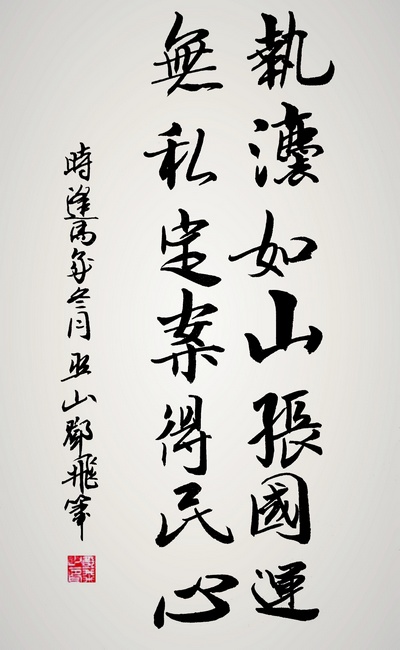 執灋如山張國運
無私定案得民心
時逢馬年冬月巫山鄧飛筆